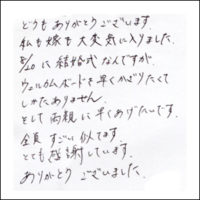 どうもありがとうございます
私も嫁も大変気に入りました。
8/20に結婚式なんですが、
ウェルカムボードを早くかざりたくて
しかたありません。
そして両親に早くあげたいです。
全員すごい似てます。
とても感謝しています。
ありがとうございました。